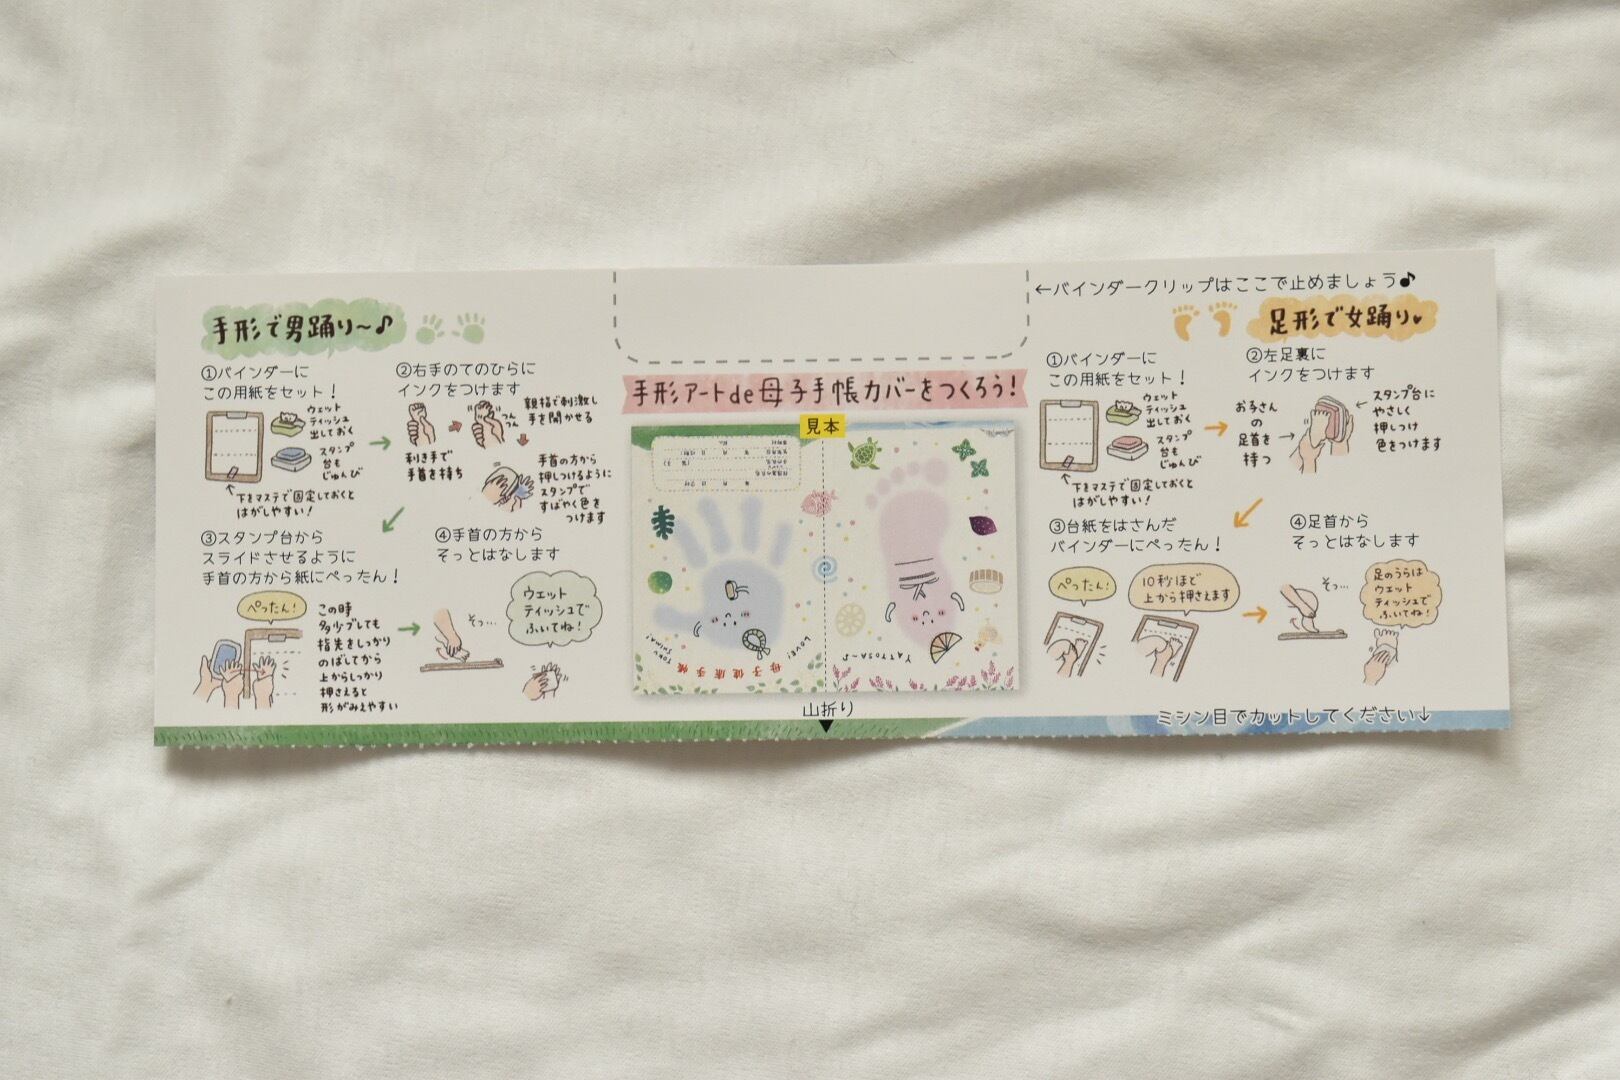 ←バインダークリップはここで止めましょう♪
手形で男踊り〜♪
①バインダーに
この用紙をセット!
ウェット
ティッシュ
出しておく
スタンプ
台も
じゅんび
下をマステで固定しておくと
はがしやすい!
②右手のてのひらに
インクをつけます
利き手で
手首を持ち
つん
つん
親指で刺激し
手を開かせる
手首の方から
押しつけるように
スタンプで
すばやく色を
つけます
③スタンプ台から
スライドさせるように
手首の方から紙にぺったん!
ぺったん!
この時
多少ブレても
指先をしっかり
のばしてから
上からしっかり
押さえると
形がみえやすい
④手首の方から
そっとはなします
そっ…
ウェット
ティッシュで
ふいてね!
手形アートde母子手帳カバーをつくろう!
見本
LOVE!
TOKUSHIMA!
母子健康手帳
YATTOSA〜♪
山折り
足形で女踊り♥
①バインダーに
この用紙をセット!
ウェット
ティッシュ
出しておく
スタンプ
台も
じゅんび
下をマステで固定しておくと
はがしやすい!
②左足裏に
インクをつけます
お子さん
の
足首を
持つ
スタンプ台に
やさしく
押しつけ
色をつけます
③台紙をはさんだ
バインダーにぺったん!
ぺったん!
10秒ほど
上から押さえます
④足首から
そっとはなします
そっ…
足のうらは
ウェット
ティッシュで
ふいてね!
ミシン目でカットしてください↓